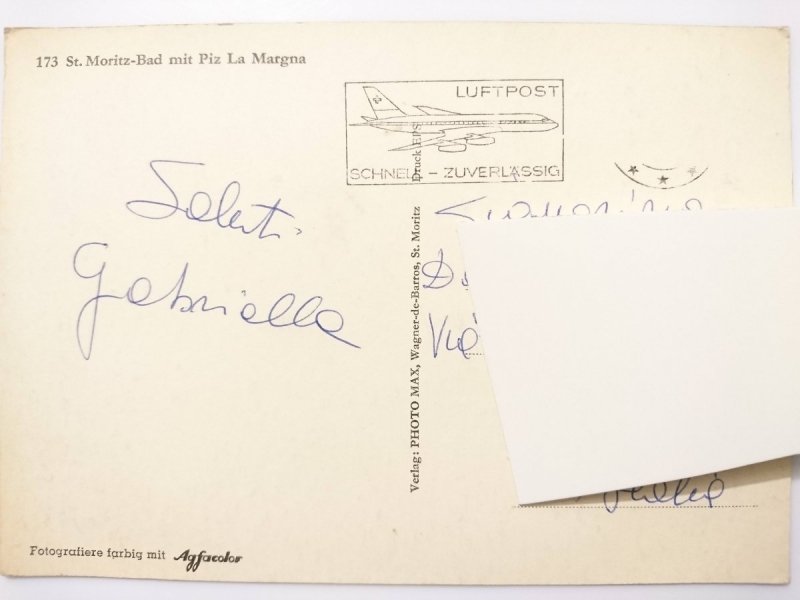 173 St. Moritz-Bad mit Piz La Margna
LUFTPOST
SCHNELL - ZUVERLÄSSIG
Saluti
Gabriella
Verlag: PHOTO MAX, Wagner-de-Barros, St. Moritz Druck EPS
Via
Italia
Fotografiere farbig mit Agfacolor